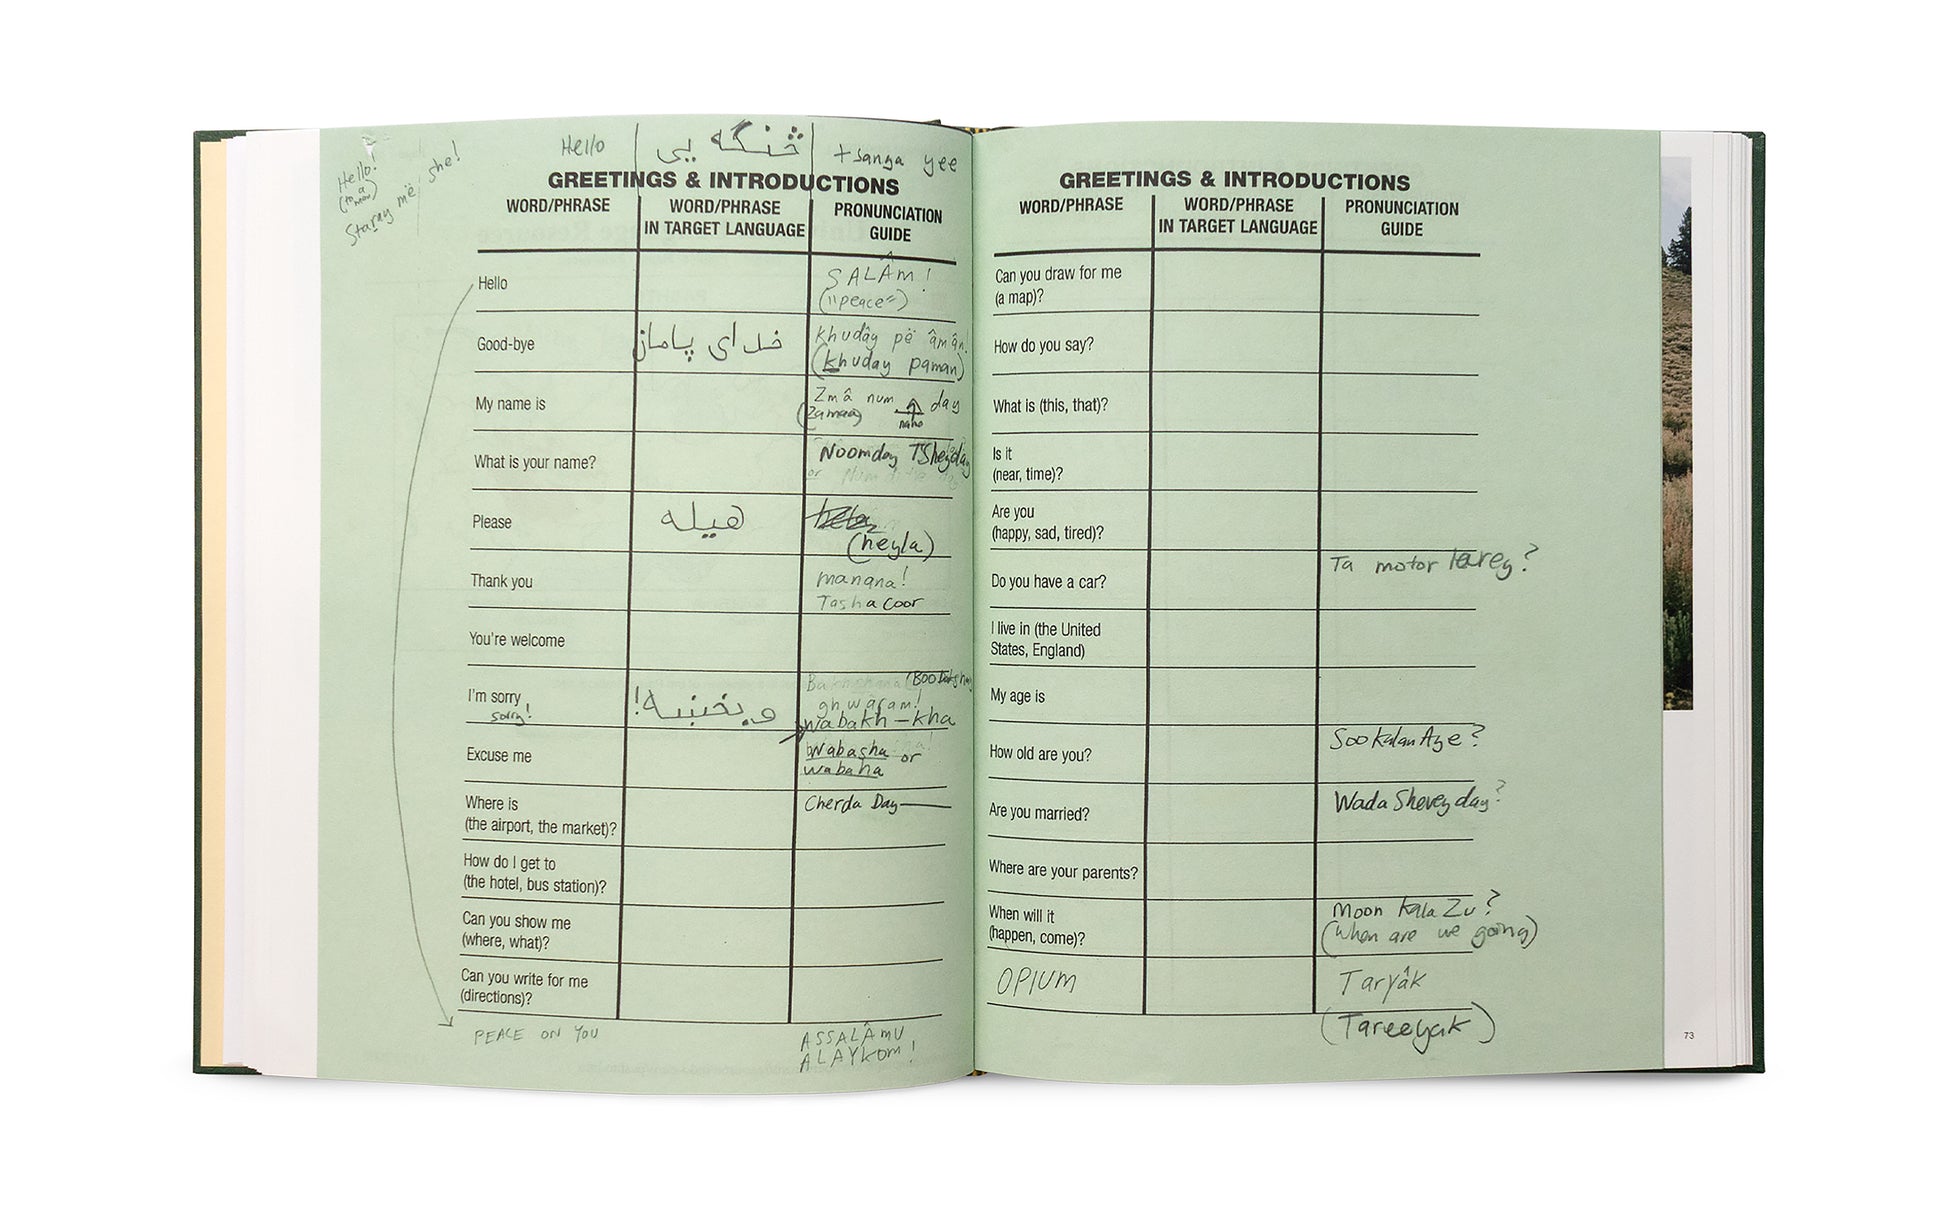 Hello څنگه یی +sanga yee
Hello!
(to a man)
Staray më she!
GREETINGS & INTRODUCTIONS
WORD/PHRASE
WORD/PHRASE
IN TARGET LANGUAGE
PRONUNCIATION
GUIDE
Hello
SALÂM!
("peace")
Good-bye
خدای پامان
khudây pë âmân!
(khuday paman)
My name is
Zmâ num day
(zamaa)
What is your name?
Noomday TSheyday
or
Please
هیله
(heyla)
Thank you
manana!
Tashacoor
You're welcome
I'm sorry
sorry!
وبخښه!
ghwâram!
wabakh-kha
Excuse me
Wabasha or
wabaha
Where is
(the airport, the market)?
Cherda Day
How do I get to
(the hotel, bus station)?
Can you show me
(where, what)?
Can you write for me
(directions)?
PEACE ON YOU
ASSALÂMU
ALAYKOM!
GREETINGS & INTRODUCTIONS
WORD/PHRASE
WORD/PHRASE
IN TARGET LANGUAGE
PRONUNCIATION
GUIDE
Can you draw for me
(a map)?
How do you say?
What is (this, that)?
Is it
(near, time)?
Are you
(happy, sad, tired)?
Do you have a car?
Ta motor larey?
I live in (the United
States, England)
My age is
How old are you?
Soo Kalan Aye?
Are you married?
Wada Shevey day?
Where are your parents?
When will it
(happen, come)?
Moon Kala Zu?
(when are we going)
OPIUM
Taryâk
(Tareeyak)
73